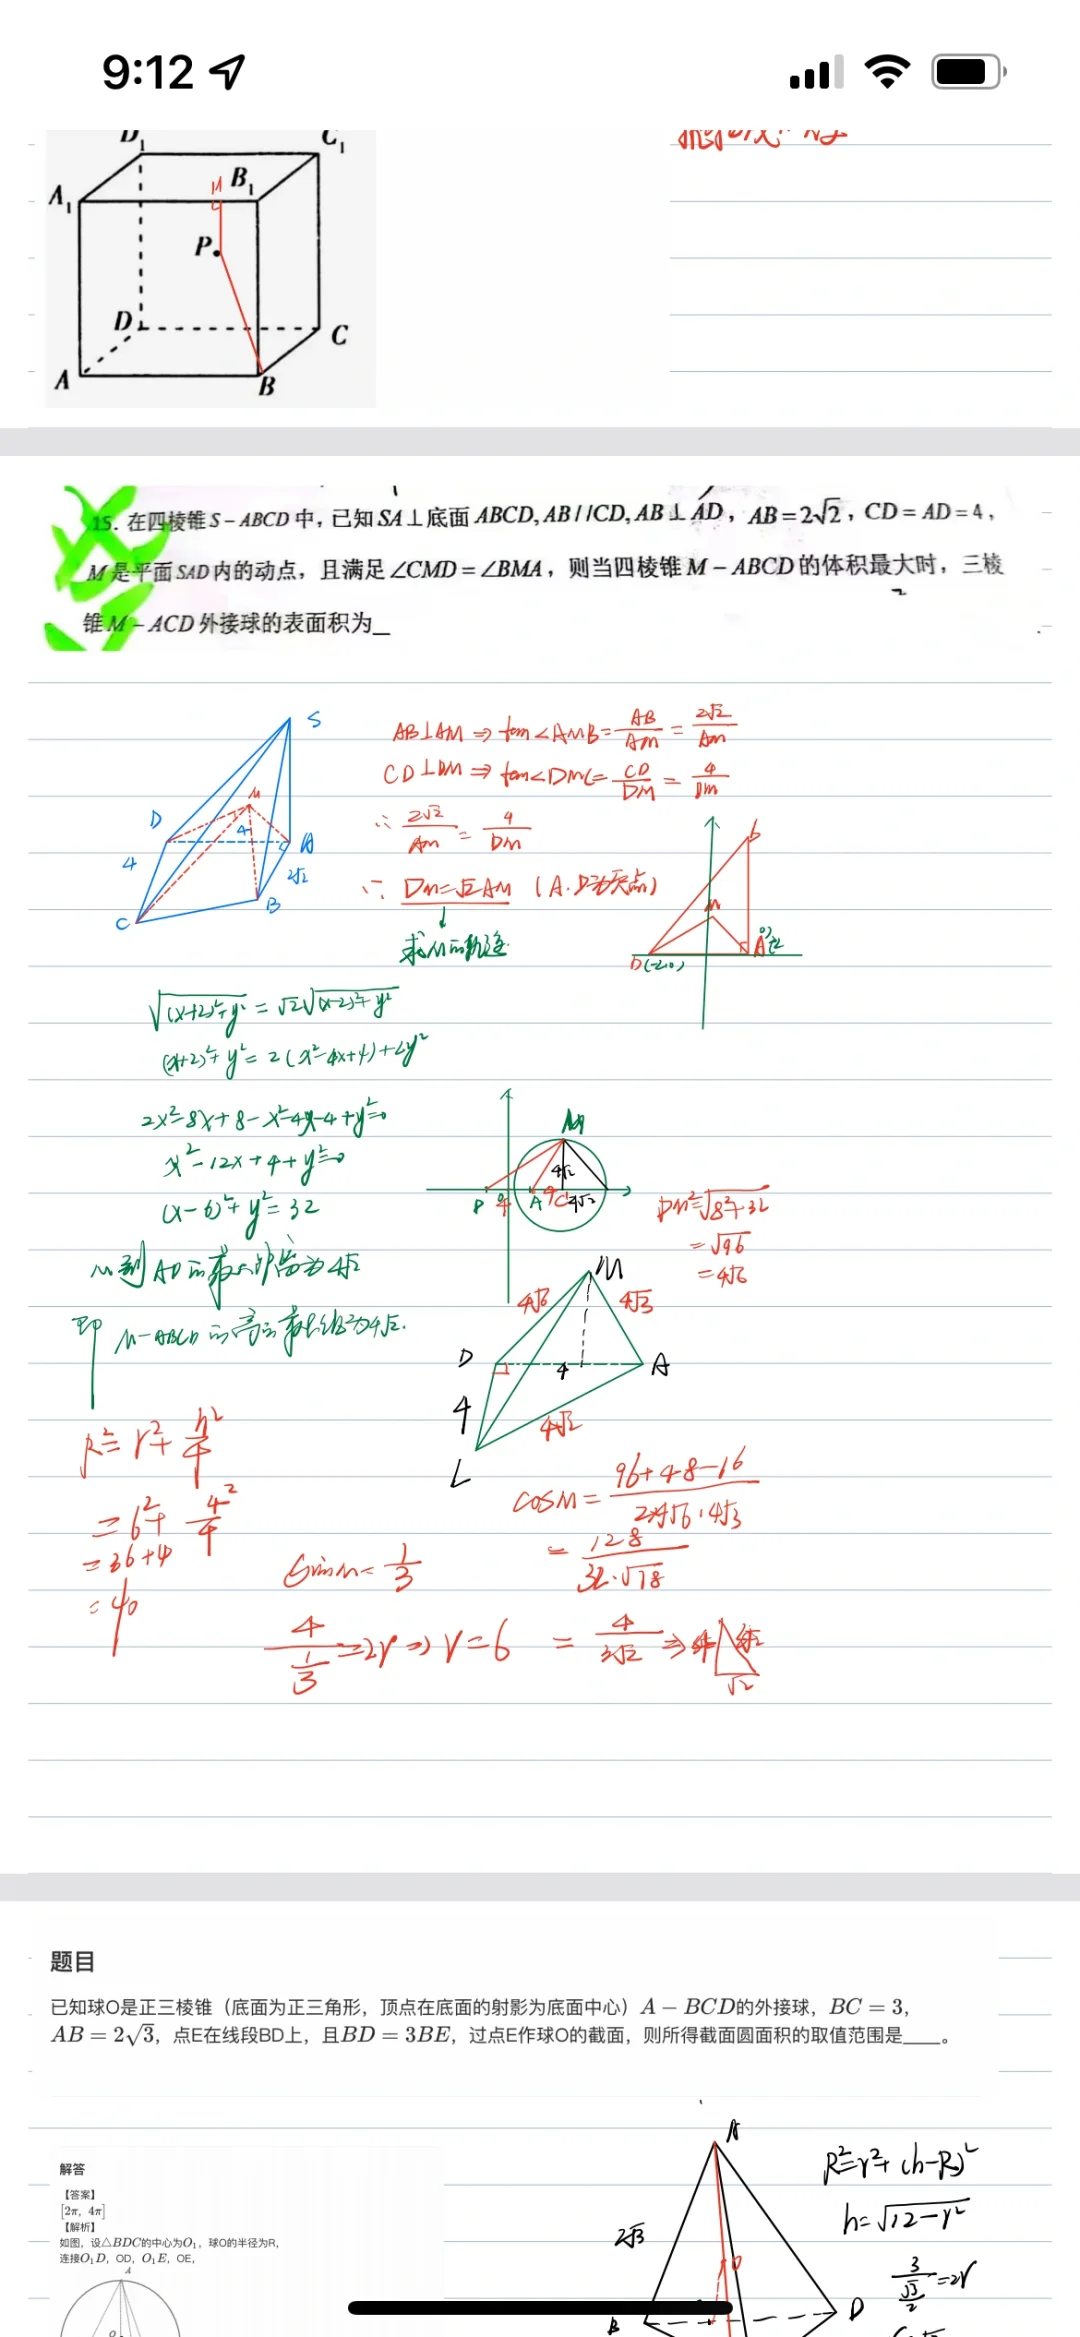 9:12
D₁ C₁
A₁ M B₁
P
D C
A B
15. 在四棱锥 S－ABCD 中，已知 SA⊥底面 ABCD, AB//CD, AB⊥AD，AB=2√2，CD=AD=4，
M 是平面 SAD 内的动点，且满足∠CMD=∠BMA，则当四棱锥 M－ABCD 的体积最大时，三棱
锥 M－ACD 外接球的表面积为__
S
D M A
4 4 2√2
C B
AB⊥AM ⇒ tan∠AMB = AB/AM = 2√2/AM
CD⊥DM ⇒ tan∠DMC = CD/DM = 4/DM
∴ 2√2/AM = 4/DM
∴ DM=√2AM (A.D为定点)
求M的轨迹
D(-2,0)
√((x+2)²+y²) = √2√((x-2)²+y²)
(x+2)²+y² = 2(x²-4x+4)+2y²
2x²-8x+8-x²-4x-4+y²=0
x²-12x+4+y²=0
(x-6)²+y²=32
M到AD的最大距离为4√2
即 M-ABCD的高的最大值为4√2.
M
4√2
DM=√(8²+32)
=√96
=4√6
M
4√6 4√3
D 4 A
4 4√2
R²=r²+h²/4
=6²+4²/4
=36+4
=40
cosM = (96+48-16)/(2×4√6·4√3)
= 128/(32·√18)
= 4/(3√2)
sinM=1/3
4/(1/3)=2r ⇒ r=6
题目
已知球O是正三棱锥（底面为正三角形，顶点在底面的射影为底面中心）A－BCD的外接球，BC = 3，
AB = 2√3，点E在线段BD上，且BD = 3BE，过点E作球O的截面，则所得截面圆面积的取值范围是____。
解答
【答案】
[2π, 4π]
【解析】
如图，设△BDC的中心为O₁，球O的半径为R，
连接O₁D，OD，O₁E，OE，
A
A
2√3
O
B D
R²=r²+(h-R)²
h=√(12-r²)
3/(√3/2)=2r